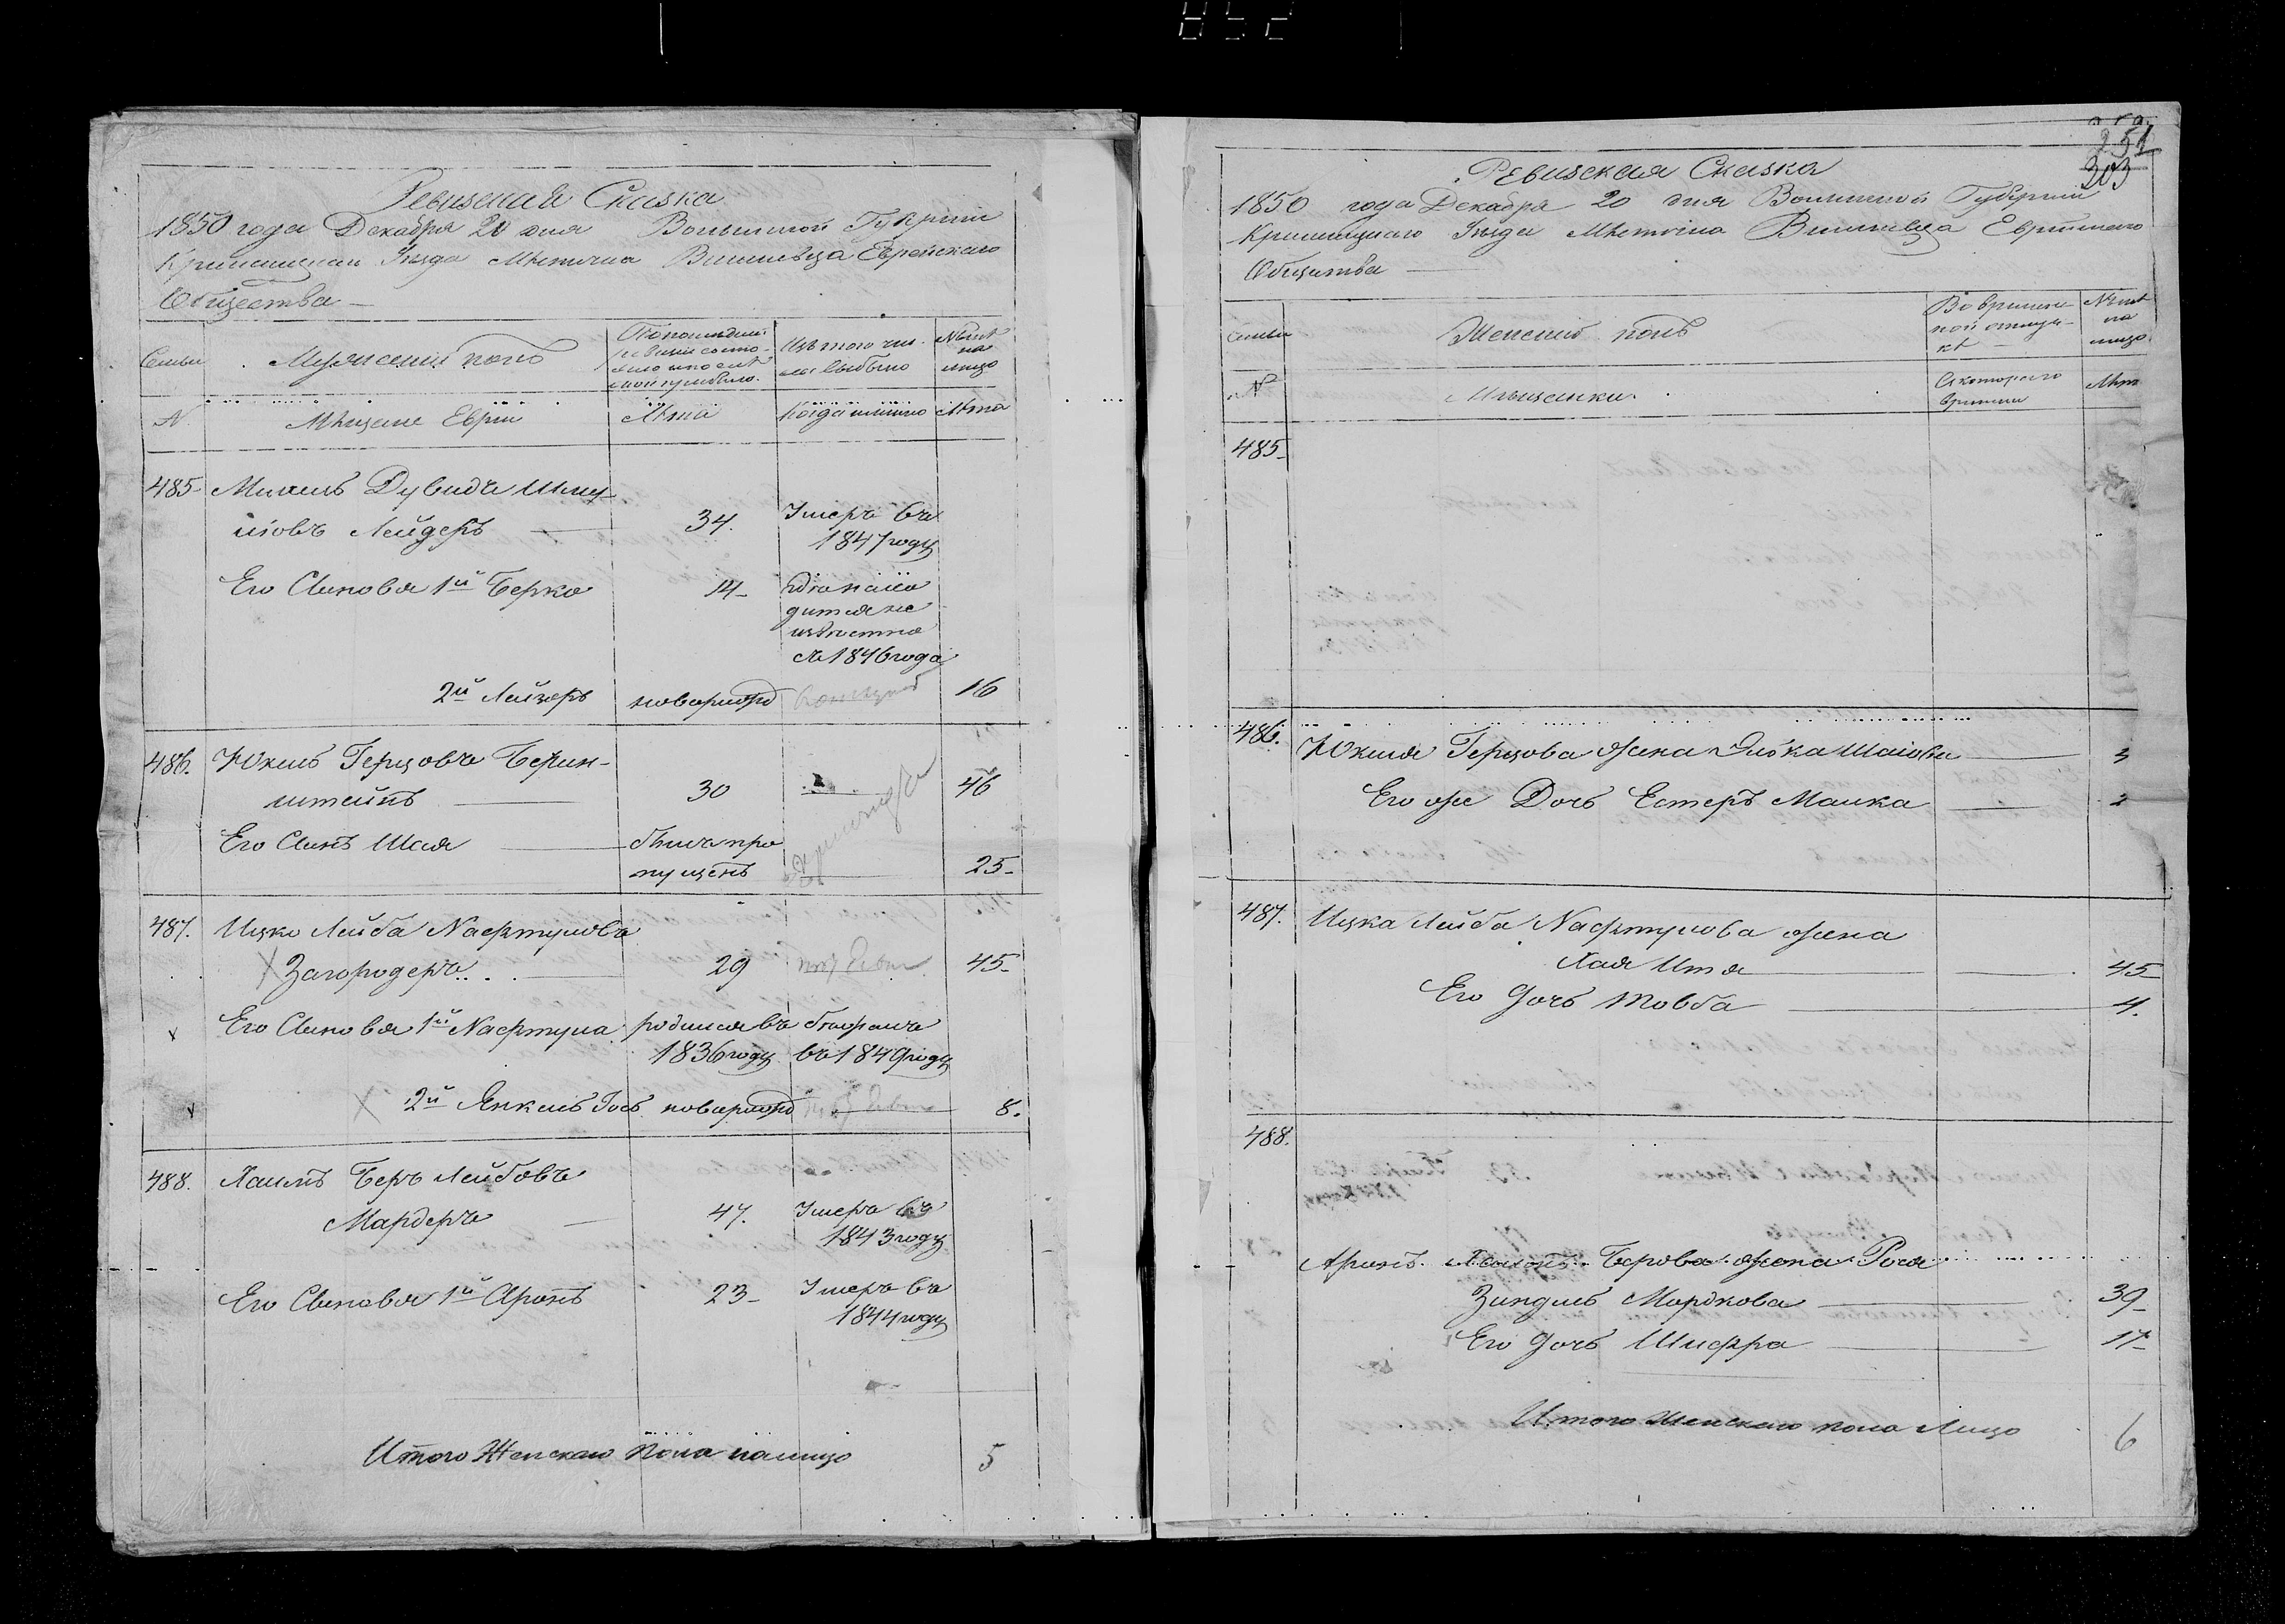 852
Ревизская Сказка
1850 года Декабря 20 дня Волынской Губернии
Кременецкаго Уезда Местечка Вишневца Еврейскаго
Общества
Семьи
Мужеский полъ
По последней
ревизии состо-
яло и после
оной прибыло.
Изъ того чис
ла выбыло
Ныне
на
лицо
N
Мещане Евреи
Лета
Когда именно
Лета
485
Михель Дувидъ Шму
левъ Лейдеръ
34.
Умеръ въ
1847 году
Его Сыновья 1й Берко
14
где нахо
дится не
известно
съ 1846 года
2й Лейзеръ
новорожд
16
486.
Юкель Герцовъ Берин-
штейнъ
30
46
Его Сынъ Шая
былъ про
пущенъ
25
487.
Ицко Лейба Нафтулова
Загородеръ
29
45
Его Сыновья 1й Нафтула
родился въ
1836 году
въ 1849 году
2й Янкель Iось
новорожд
8.
488.
Хаимъ Беръ Лейбовъ
Мардеръ
47.
Умеръ въ
1843 году
Его Сыновья 1й Аронъ
23
Умеръ въ
1844 году
Итого Женскаго пола налицо
5
251
303
Ревизская Сказка
1850 года Декабря 20 дня Волынской Губернии
Кременецкаго Уезда Местечка Вишневца Еврейскаго
Общества
Семьи
Женский полъ
Во времен
ной отлуч-
ке
Ныне
на
лицо
N
Мещанки
Съ котораго
времени
Лет
485
486.
Юкеля Герцова жена Рыбка Шаiовна
Его же Дочь Естеръ Малка
2
487.
Ицка Лейба Нафтулова жена
Хая Итя
45
Его дочь Товба
4.
488.
Аронъ Хаимъ Берова жена Рося
Зиндель Мордкова
39
Его дочь Шифра
17
Итого Женскаго пола Лицо
6